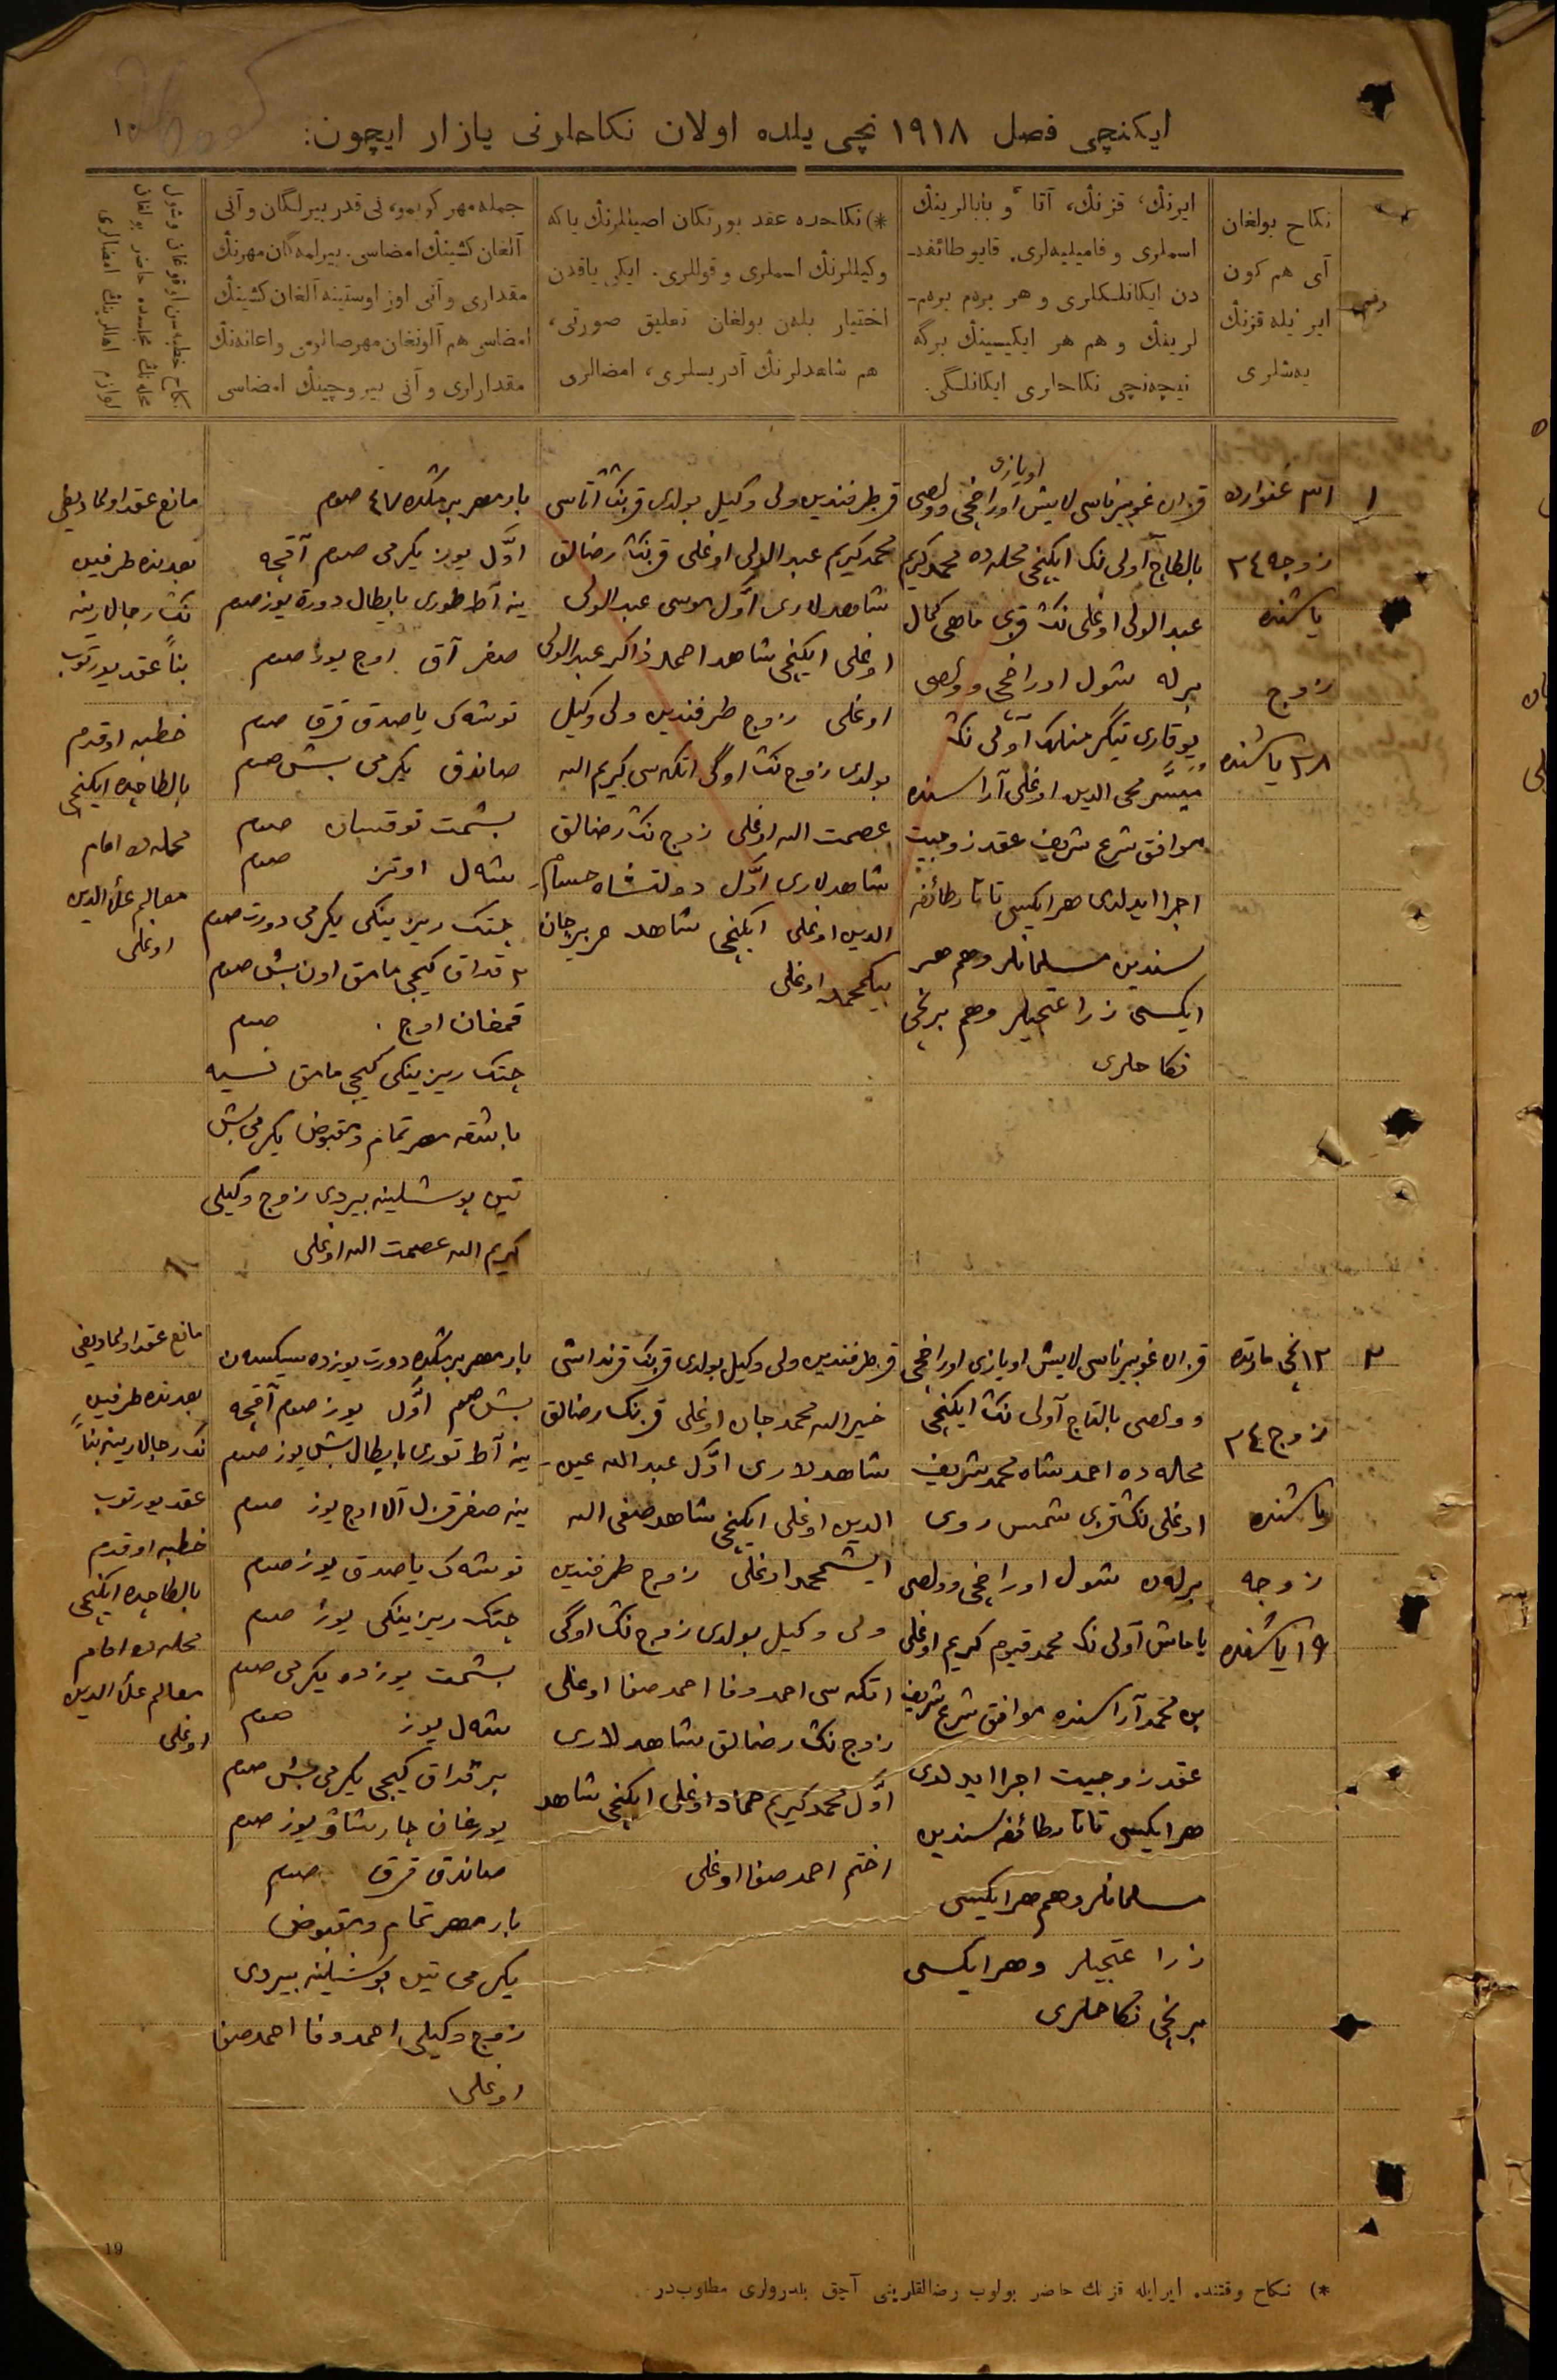 ایکنچی فصل ۱۹۱۸ نچی یلده اولان نکاحلرنی یازار ایچون:
۱۰
نکاح بولغان
آی هم کون
ایر ایله قزنڭ
یەشلری
ایرنڭ، قزنڭ، آتا و بابالرینڭ
اسملری و فامیلیەلری. قایو طائفه‌ـ
دن ایکانلکلری و هر بردم بردم‌ـ
لرینڭ و هم هر ایکیسینڭ برگه
نیچەنچی نکاحلری ایکانلگی.
*) نکاحده عقد یورتکان اصیللرنڭ یاکه
وکیللرنڭ اسملری و قوللری. ایکی یاقدن
اختیار بلەن بولغان تعلیق صورتی،
هم شاهدلرنڭ آدریسلری، امضالری
جمله مهر کوبمو، نی قدر بیرلگان و آنی
آلغان کشینڭ امضاسی. بیرلمەگان مهرنڭ
مقداری و آنی اوز اوستینه آلغان کشینڭ
امضاسی هم آلونغان مهر صانومی و اعانەنڭ
مقدارلری و آنی بیروچینڭ امضاسی
۱
زوجه ۲۴
یاشنده
زوج
۳۸ یاشنده
اویازی
قزان غوبیرناسی لایش اوراخچی وولصی
بالطاچ آولی نڭ ایکنچی محله‌ده محمدکریم
عبدالولی اوغلی نڭ قزی ماهی کمال
برله شول اوراخچی وولصی
یوقاری آولی نڭ
میسر محی الدین اوغلی آراسنده
موافق شرع شریف عقد زوجیت
اجرا ایدلدی هر ایکیسی تاتار طائفه
سندین مسلمانلر و هم هر
ایکیسی زراعتچیلر و هم برنچی
نکاحلری
قز طرفندین ولی وکیل بولدی قزنڭ آتاسی
محمدکریم عبدالولی اوغلی قزنڭ رضالق
شاهدلاری اوّل موسی عبدالولی
اوغلی ایکنچی شاهد احمد ذاکر عبدالولی
اوغلی زوج طرفندین ولی وکیل
بولدی زوج نڭ اوگی اتکه‌سی کریم الله
عصمت الله اوغلی زوج نڭ رضالق
شاهدلاری اوّل دولتشاه حسام
الدین اوغلی ایکنچی شاهد
بیکمحمد اوغلی
بار مهر بر مڭده ٤٧ صوم
اوّل یوز یکرمی صوم آقچه
ینه آط طوری بایطال دورت یوز صوم
صغر آق اوچ یوز صوم
توشەک یاصدق قرق صوم
صاندق یکرمی بش صوم
بشمت توقسان صوم
شەل اوتز صوم
چتک ریزینکی یکرمی دورت صوم
۲ قداق کیجی مامق اون بش صوم
قمغان اوچ صوم
چتک ریزینکی کیجی مامق نسیه
باشقه مهر تمام و مقبوض یکرمی بش
تین پوشلینه بیردی زوج وکیلی
کریم الله عصمت الله اوغلی
مانع عقد اولمادیغی
بعدنده طرفین
نڭ رجالارینه
بناً عقد یورتوب
خطبه اوقدم
بالطاچده ایکنچی
محله‌ده امام
معالم علاءالدین
اوغلی
۲
۱۲ نچی مارتده
زوج ۲٤
یاشنده
زوجه
۱۹ یاشنده
قزان غوبیرناسی لایش اویازی اوراخچی
وولصی بالتاچ آولی نڭ ایکنچی
محله‌ده احمدشاه محمدشریف
اوغلی نڭ قزی شمس روی
برله‌ن شول اوراخچی وولصی
یاماش آولی نڭ محمدقیوم کریم اوغلی
بن محمد آراسنده موافق شرع شریف
عقد زوجیت اجرا ایدلدی
هر ایکیسی تاتار طائفه سندین
مسلمانلر و هم هر ایکیسی
زراعتچیلر و هر ایکیسی
برنچی نکاحلری
قز طرفندین ولی وکیل بولدی قزنڭ قرنداشی
خیرالله محمدجان اوغلی قزنڭ رضالق
شاهدلاری اوّل عبدالله عین‌ـ
الدین اوغلی ایکنچی شاهد صفی الله
ایشمحمد اوغلی زوج طرفندین
ولی وکیل بولدی زوج نڭ اوگی
اتکه‌سی احمدوفا احمدصفا اوغلی
زوج نڭ رضالق شاهدلاری
اوّل محمدکریم حماد اوغلی ایکنچی شاهد
احمدصفا اوغلی
بار مهر بر مڭده دورت یوزده سیکسەن
بش صوم اوّل یوز صوم آقچه
ینه آط توری بایطال بش یوز صوم
ینه صغر قزل آلا اوچ یوز صوم
توشەک یاصدق یوز صوم
چتک ریزینکی یوز صوم
بشمت یوزده یکرمی صوم
شەل یوز صوم
بر قداق کیجی یکرمی بش صوم
یورغان چارشاو یوز صوم
صاندق قرق صوم
بار مهر تمام و مقبوض
یکرمی تین پوشلینه بیردی
زوج وکیلی احمدوفا احمدصفا
اوغلی
مانع عقد اولمادیغی
بعدنده طرفین
نڭ رجالارینه بناً
عقد یورتوب
خطبه اوقدم
بالطاچده ایکنچی
محله‌ده امام
معالم علاءالدین
اوغلی
19
*) نکاح وقتنده ایر ایله قزنڭ حاضر بولوب رضالقلرینی آچق بلدرولری مطلوب‌در.